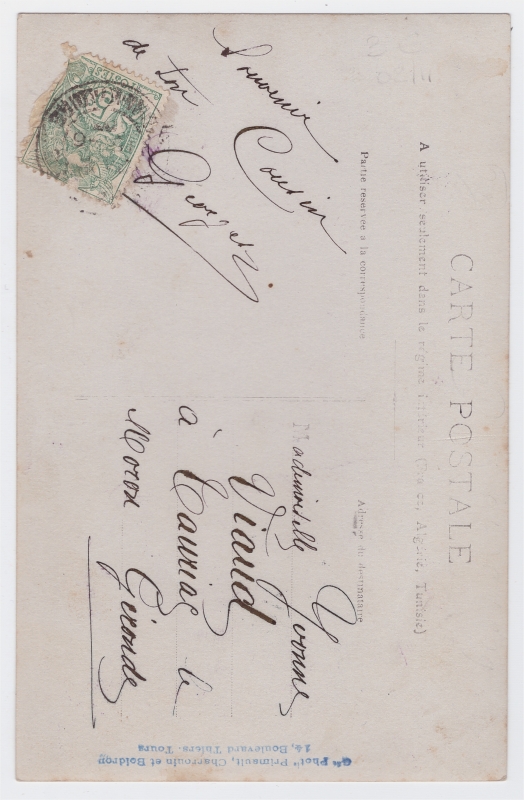 CARTE POSTALE
A utiliser seulement dans le régime intérieur (France, Algérie, Tunisie)
Partie réservée à la correspondance
Adresse du destinataire
Souvenir
Cousin
de ton
Georges
Mademoiselle Yvonne
Viaud
à Tauriac le
Moron Gironde
Gde Photie Primault, Charrouin et Boidron
14, Boulevard Thiers. Tours